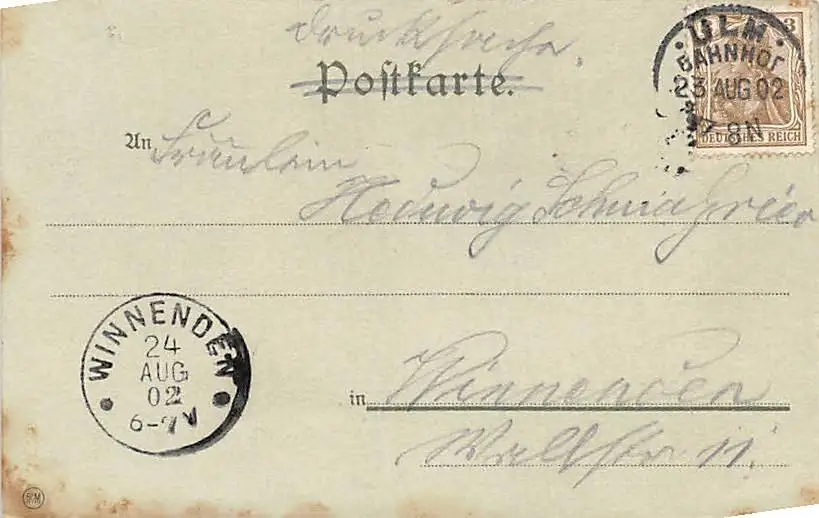 Drucksache.
Postkarte.
3
ULM
BAHNHOF
23 AUG 02
7-8N
DEUTSCHES REICH
An Fräulein
Hedwig
WINNENDEN
24
AUG
02
6-7V
in Winnenden